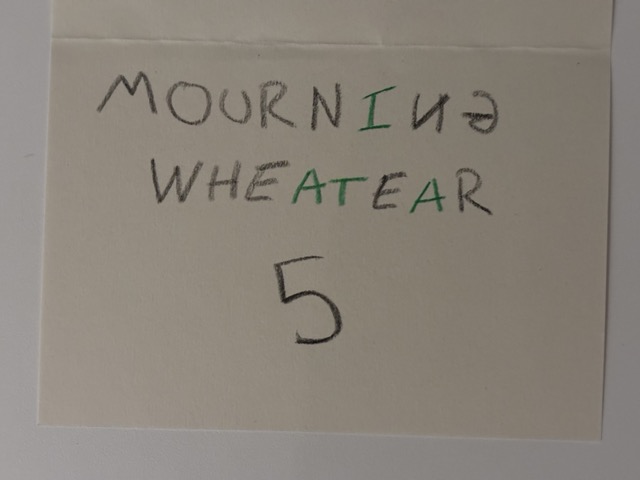 MOURNING
WHEATEAR
5